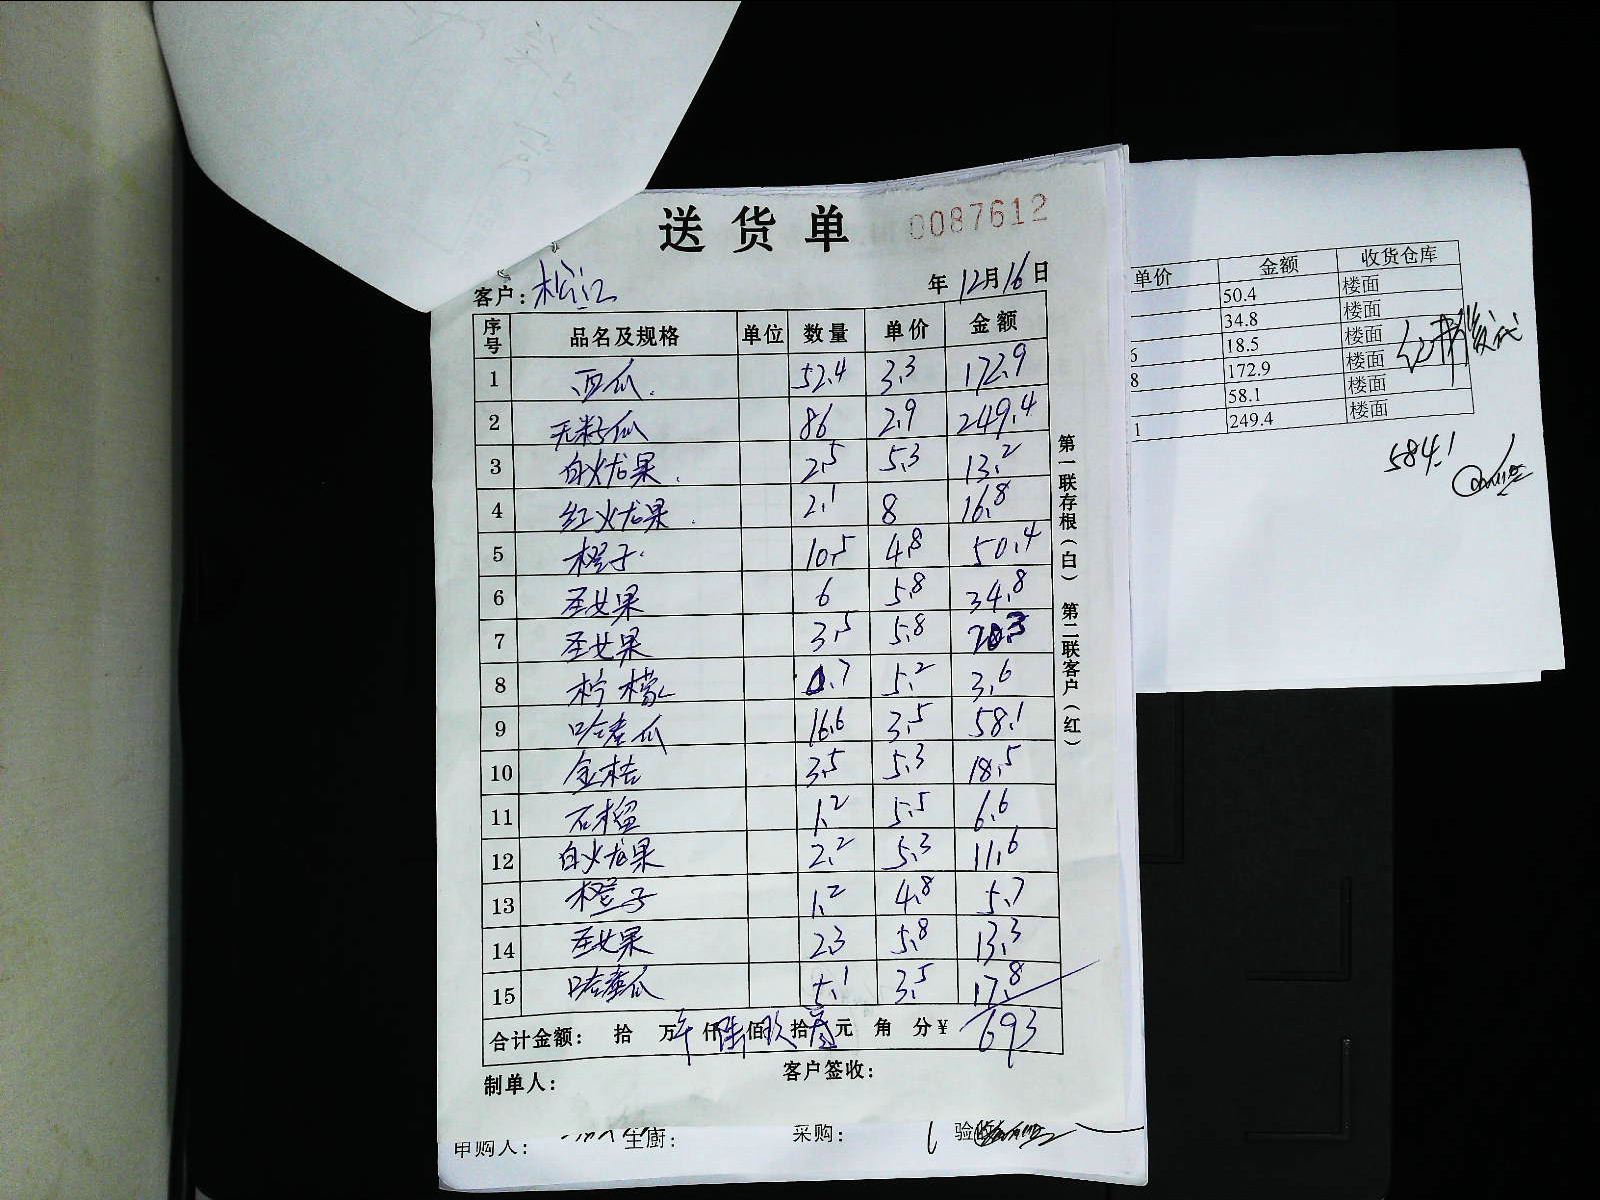 送货单 0087612
客户：松江 年12月16日
序号 品名及规格 单位 数量 单价 金额
1 西瓜. 52.4 3.3 172.9
2 无籽瓜 86 2.9 249.4
3 白火龙果. 2.5 5.3 13.2
4 红火龙果. 2.1 8 16.8
5 橙子. 10.5 4.8 50.4
6 圣女果 6 5.8 34.8
7 圣女果 3.5 5.8 20.3
8 柠檬 0.7 5.2 3.6
9 哈蜜瓜 16.6 3.5 58.1
10 金桔 3.5 5.3 18.5
11 石榴 1.2 5.5 6.6
12 白火龙果 2.2 5.3 11.6
13 橙子 1.2 4.8 5.7
14 圣女果 2.3 5.8 13.3
15 哈蜜瓜 5.1 3.5 17.8
合计金额： 拾 万 仟陆佰玖拾叁元 角 分¥ 693
制单人： 客户签收：
第一联存根（白） 第二联客户（红）
申购人： 采购： 验
单价 金额 收货仓库
50.4 楼面
34.8 楼面
18.5 楼面
172.9 楼面
58.1 楼面
249.4 楼面
584.1